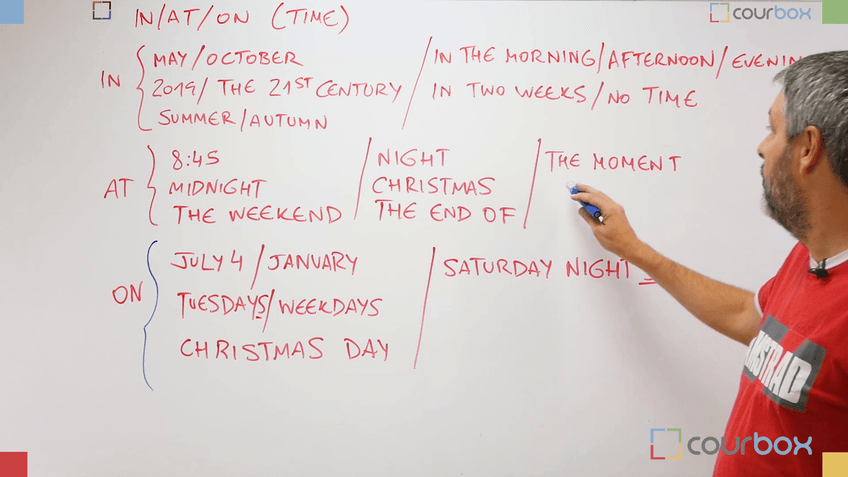 IN/AT/ON (TIME)
courbox
IN
MAY/OCTOBER
2019/THE 21ST CENTURY
SUMMER/AUTUMN
IN THE MORNING/AFTERNOON/EVENIN
IN TWO WEEKS/NO TIME
AT
8:45
MIDNIGHT
THE WEEKEND
NIGHT
CHRISTMAS
THE END OF
THE MOMENT
ON
JULY 4/JANUARY
TUESDAYS/WEEKDAYS
CHRISTMAS DAY
SATURDAY NIGHT
courbox